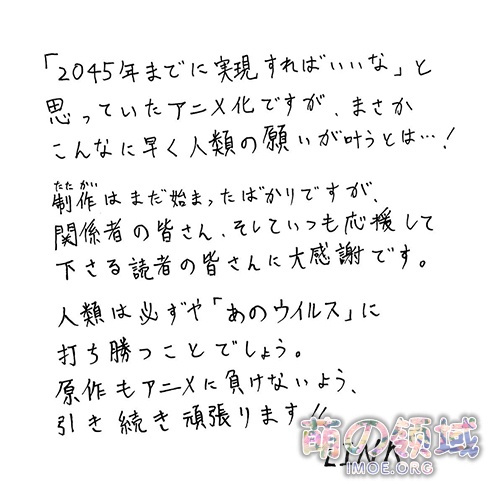 「2045年までに実現すればいいな」と
思っていたアニメ化ですが、まさか
こんなに早く人類の願いが叶うとは…!
たたかい
制作はまだ始まったばかりですが、
関係者の皆さん、そしていつも応援して
下さる読者の皆さんに大感謝です。
人類は必ずや「あのウイルス」に
打ち勝つことでしょう。
原作もアニメに負けないよう、
引き続き頑張ります!!
LINK
萌の領域
IMOE.ORG